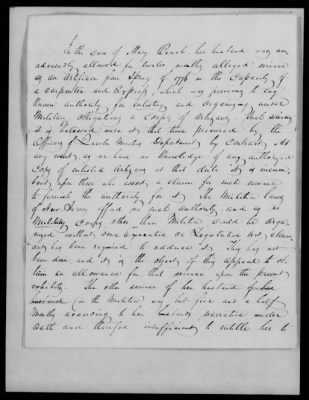 In the case of Mary Beach, her husband was not
adversely allowed for twelve months alleged service
as an Artificer from Spring of 1776 in the Capacity of
a carpenter and
which was previous to any
known authority for enlisting and organizing under
Military obligations a Corps of Artificers. Such service
it is believed were at that time procured by the
Officers of Quarter Masters Department by Contract. At
any rate, as we have no knowledge of any authorized
Corps of enlisted Artificers at that date it is incum-
bent upon those who assert a claim for such service
to furnish the authority for it. The Militia laws
of New Jersey afford no such authority and as no
Military Corps other than Militia could be orga-
nized without some Executive or Legislative Act, claim-
ant has been required to adduce it. This has not
been done and it is the object of this appeal to ob-
tain an allowance for that service upon the present
exhibits. The other service of her husband
(in the Militia) was but five and a half
months according to her husbands narrative under
Oath and therefore insufficient to entitle her to